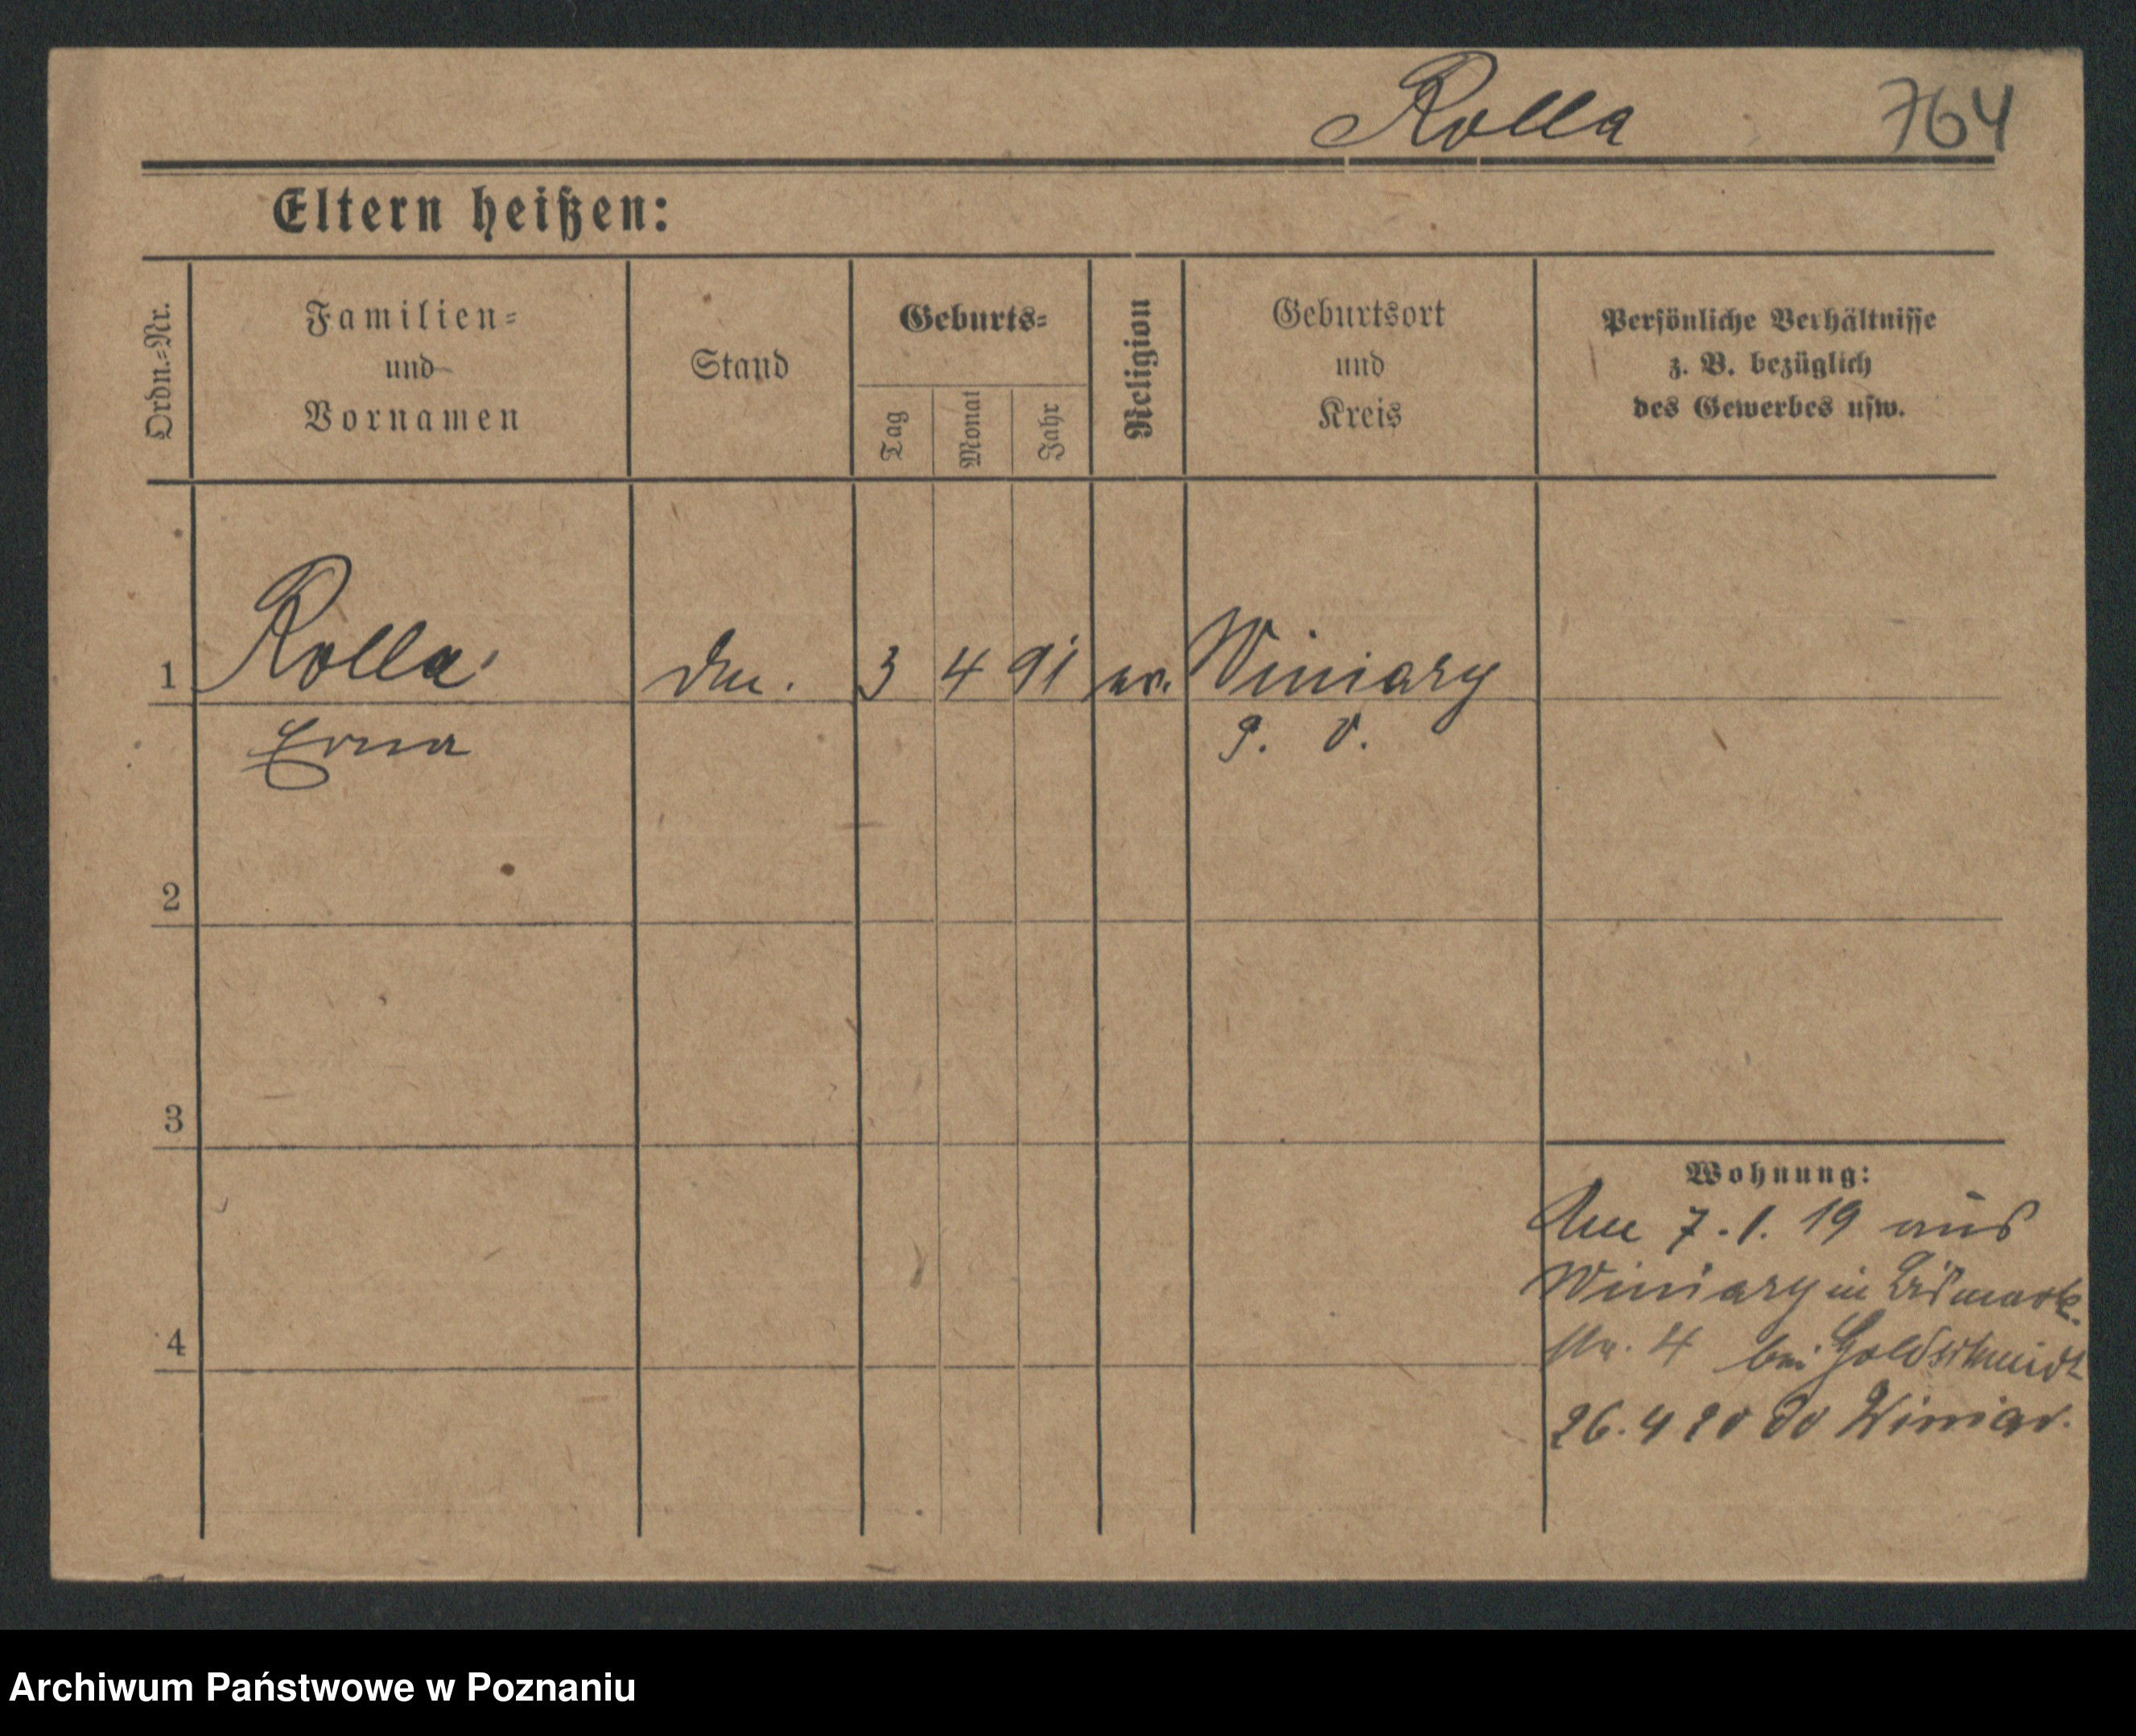 Rolla 764
Eltern heißen:
Ordn.-Nr.
Familien-
und
Vornamen
Stand
Geburts-
Tag
Monat
Jahr
Religion
Geburtsort
und
Kreis
Persönliche Verhältnisse
z. B. bezüglich
des Gewerbes usw.
1 Rolla 3 4 91 ev. Winiary
Erna
2
3
4
Wohnung:
7.1.19 aus
Winiary in Bismark-
str. 4 bei Goldschmidt
26.4 20 do Winiar.
Archiwum Państwowe w Poznaniu